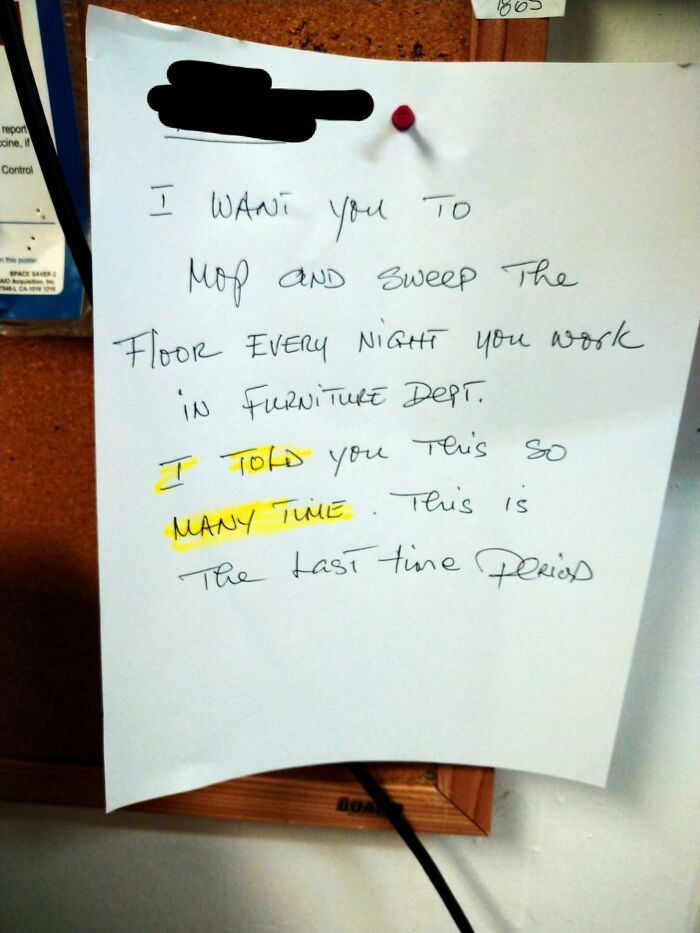 1865
report
ccine, if
Control
n this poster
SPACE SAVER 2
I WANT You TO
Mop AND SWEEP The
Floor EVERY NIGHT you work
iN FURNITURE DEPT.
I TOLD you This SO
MANY TIME. This is
The Last time PERIOD